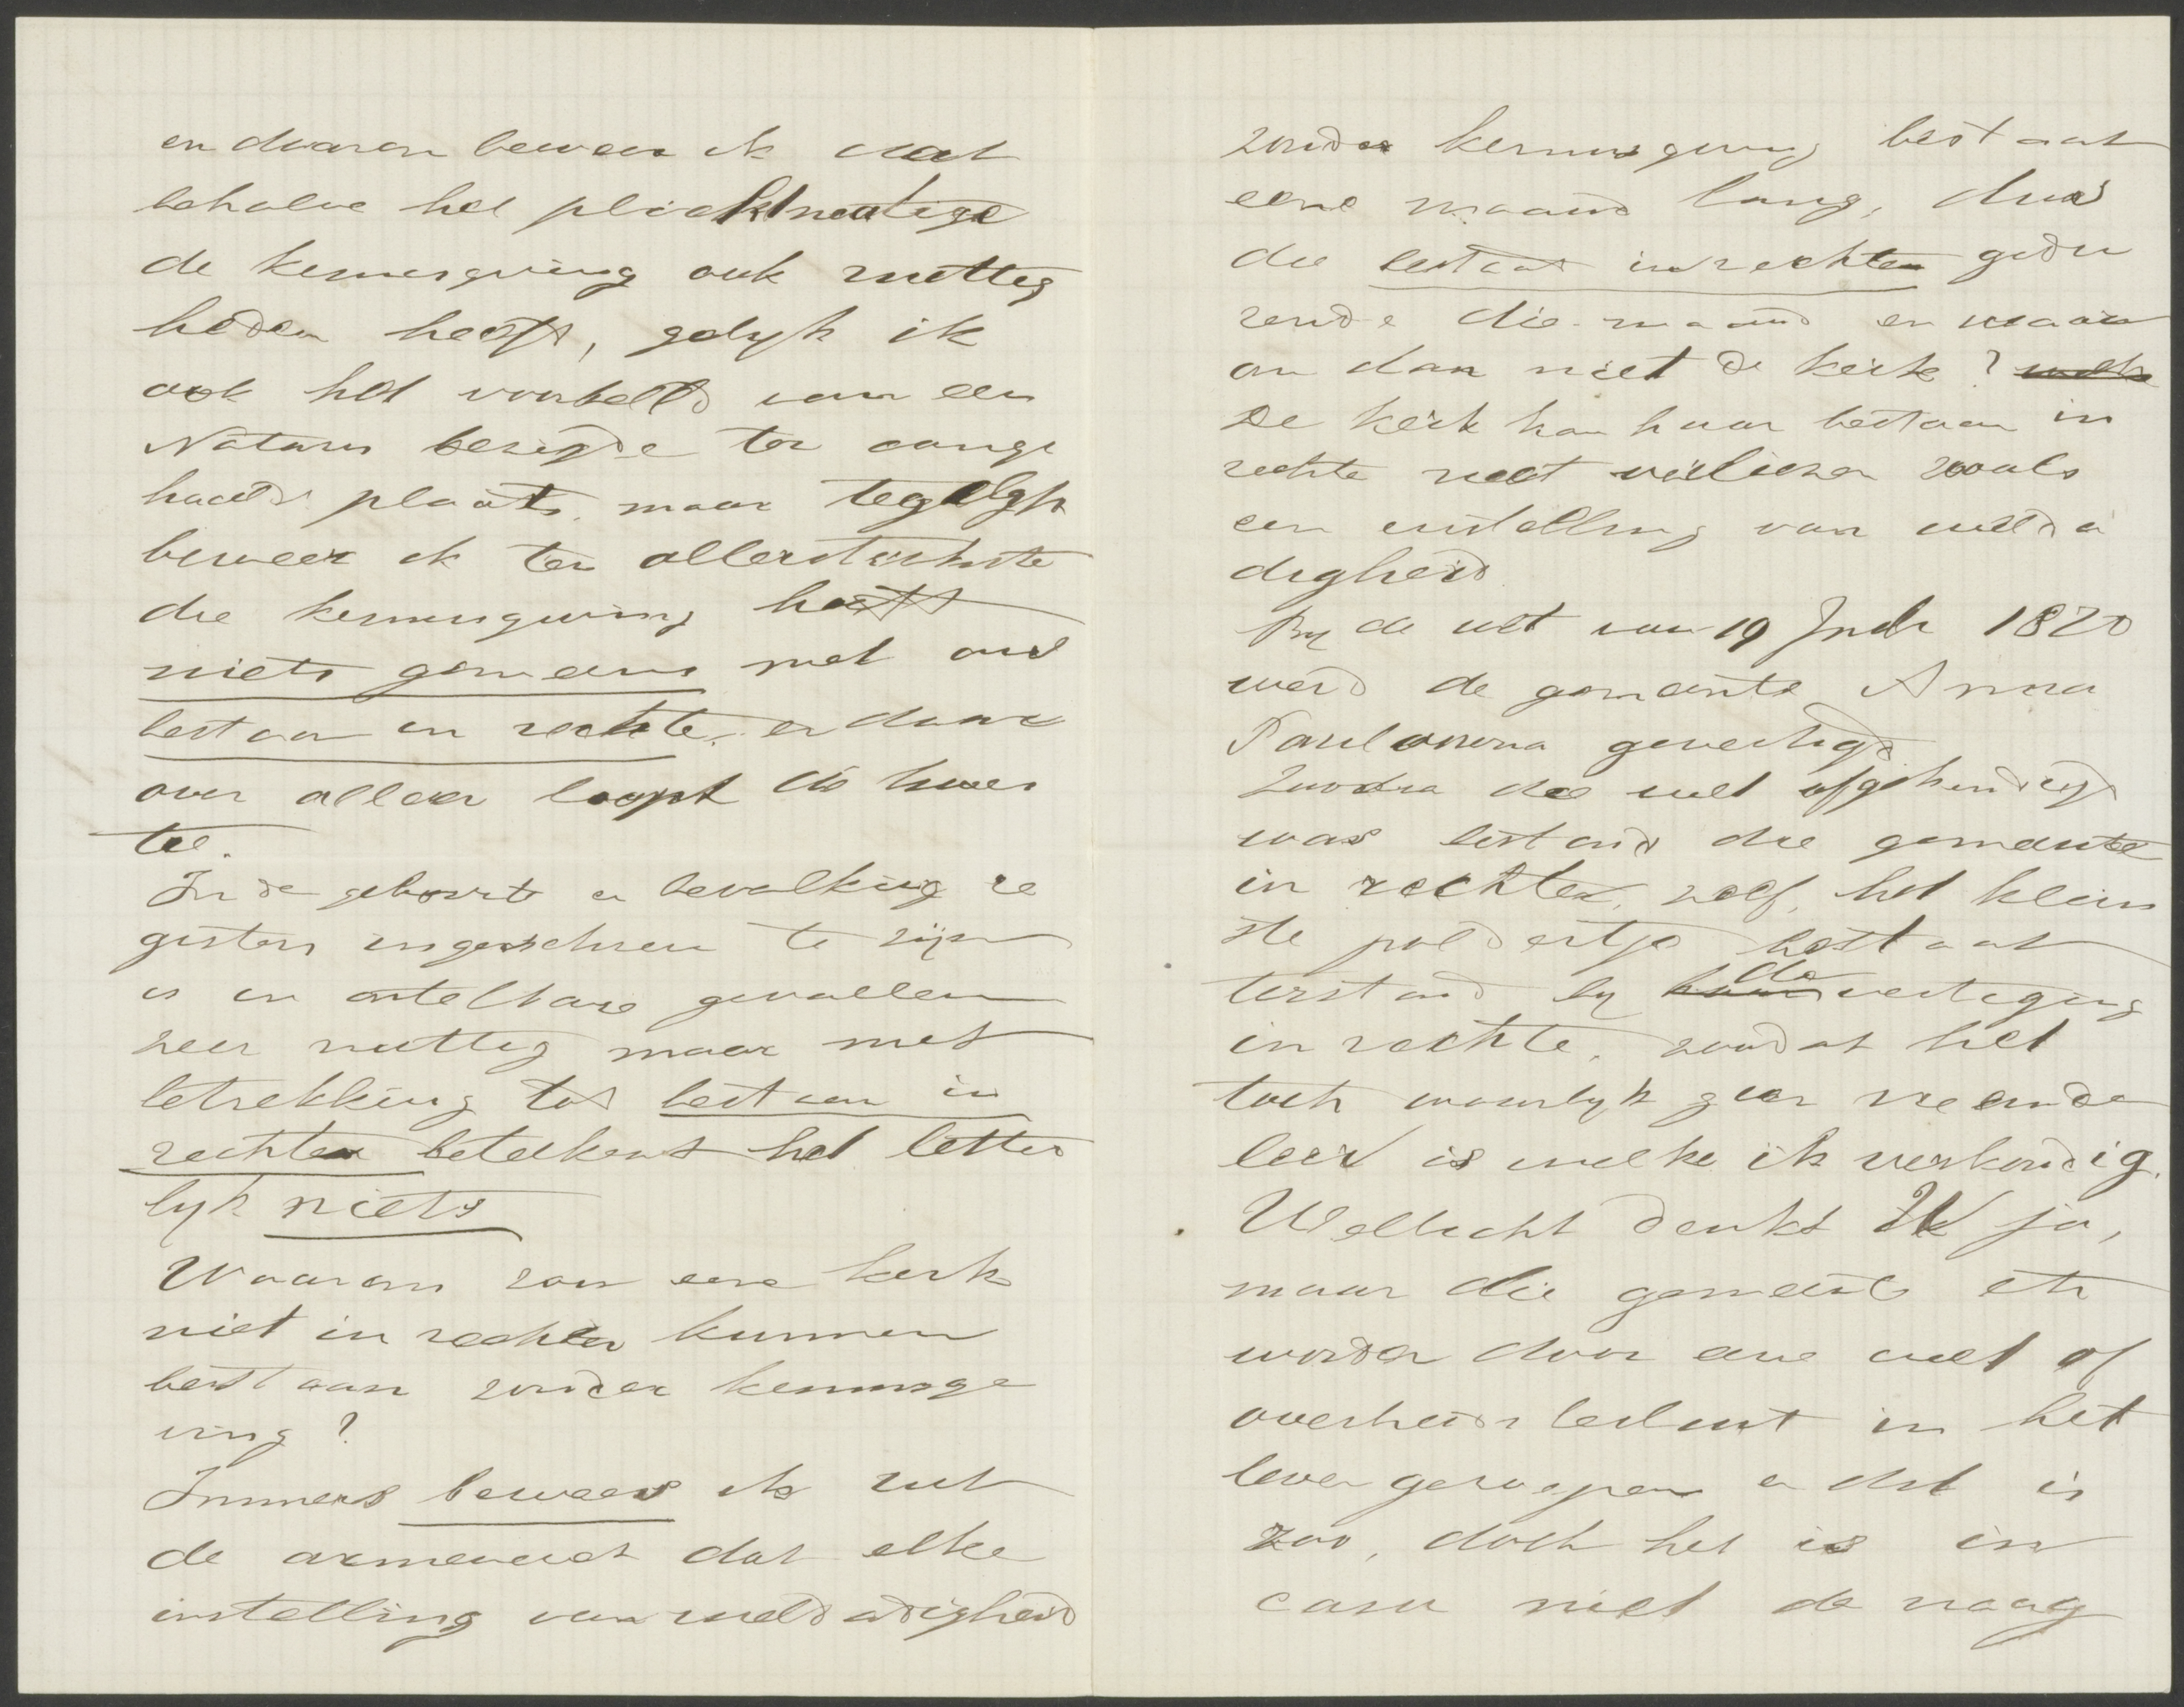 en daarom beweer ik dat
behalve het plichtmatige
de kennisgeving ook nuttig
heden heeft, gelyk ik
ook het voorbeeld van een
Notaris bezigde ter aange
haalde plaats. maar tegelyk
beweer ik ten allersterkste
die kennisgeving heeft
niets gemeens met ons
bestaan in rechte, en daar
over alleen loopt de kwes
tie.
In de geboorte en bevolking re
gisters ingeschreven te zijn
is in ontelbare gevallen
zeer nuttig maar met
betrekking tot bestaan in
rechten beteekent het letter
lyk niets
Waarom zou eene kerk
niet in rechten kunnen
bestaan zonder kennisge
ving?
Immers bewees ik uit
de armenwet dat elke
instelling van weldadigheid
zonder kennisgeving bestaat
eene maand lang, dus
die bestaat in rechten gedu
rende die maand en waar
om dan niet de kerk? welke
De kerk kan haar bestaan in
rechte niet verliezen zooals
een instelling van welda
digheid
By de wet van 19 July 1870
werd de gemeente Anna
Paulowna gevestigd
Zoodra die wet afgekondigd
was bestond die gemeente
in rechten, zelfs het klein
ste poldertje bestaat
terstond by de vestiging
in rechte, zoodat het
toch waarlyk geen vreemde
leer is welke ik verkondig.
Wellicht denkt U ja,
maar die gemeente etc
worden door eene wet of
overheids besluit in het
leven geroepen en dat is
zoo, doch het is in
casu niet de vraag